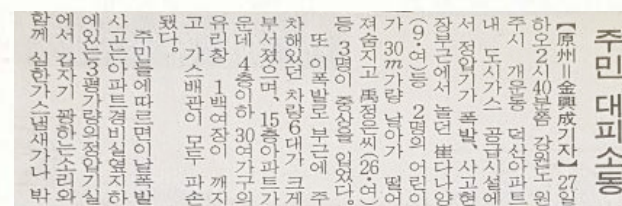 주민 대피소동
【原州=金興成기자】 27일
하오2시40분쯤 강원도 원
주시 개운동 덕산아파트
내 도시가스 공급시설에
서 정압기가 폭발, 사고현
장부근에서 놀던 崔다나양
(9·여)등 2명의 어린이
가 30m가량 날아가 떨어
져숨지고 禹정은씨(26·여)
등 3명이 중상을 입었다.
또 이폭발로 부근에 주
차해있던 차량6대가 크게
부서졌으며, 15층아파트가
운데 4층이하 30여가구의
유리창 1백여장이 깨지
고 가스배관이 모두 파손
됐다.
주민들에따르면이날폭발
사고는아파트경비실옆지하
에있는3평가량의정압기실
에서 갑자기 꽝하는소리와
함께 심한가스냄새가나 밖